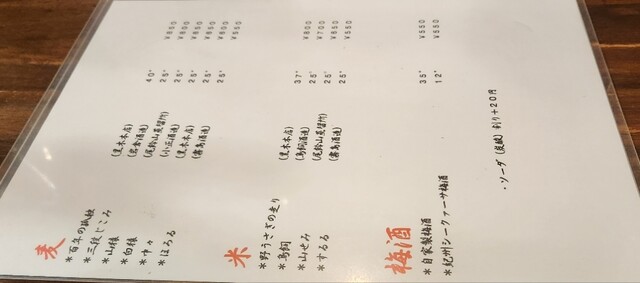 麦
*百年の孤独 (黒木本店) 40°
*三段じこみ (岩倉酒造) 25°
*山猿 (尾鈴山蒸留所) 25°
*白猿 (小玉醸造) 25°
*中々 (黒木本店) 25°
*ほろる (霧島酒造) 25° ¥550
米
*野うさぎの走り (黒木本店) 37° ¥800
*鳥飼 (鳥飼酒造) 25° ¥700
*山せみ (尾鈴山蒸留所) 25° ¥650
*するる (霧島酒造) 25° ¥550
梅酒
*自家製梅酒 35° ¥550
*紀州シークァーサ梅酒 12° ¥550
・ソーダ(炭酸)割り+20円